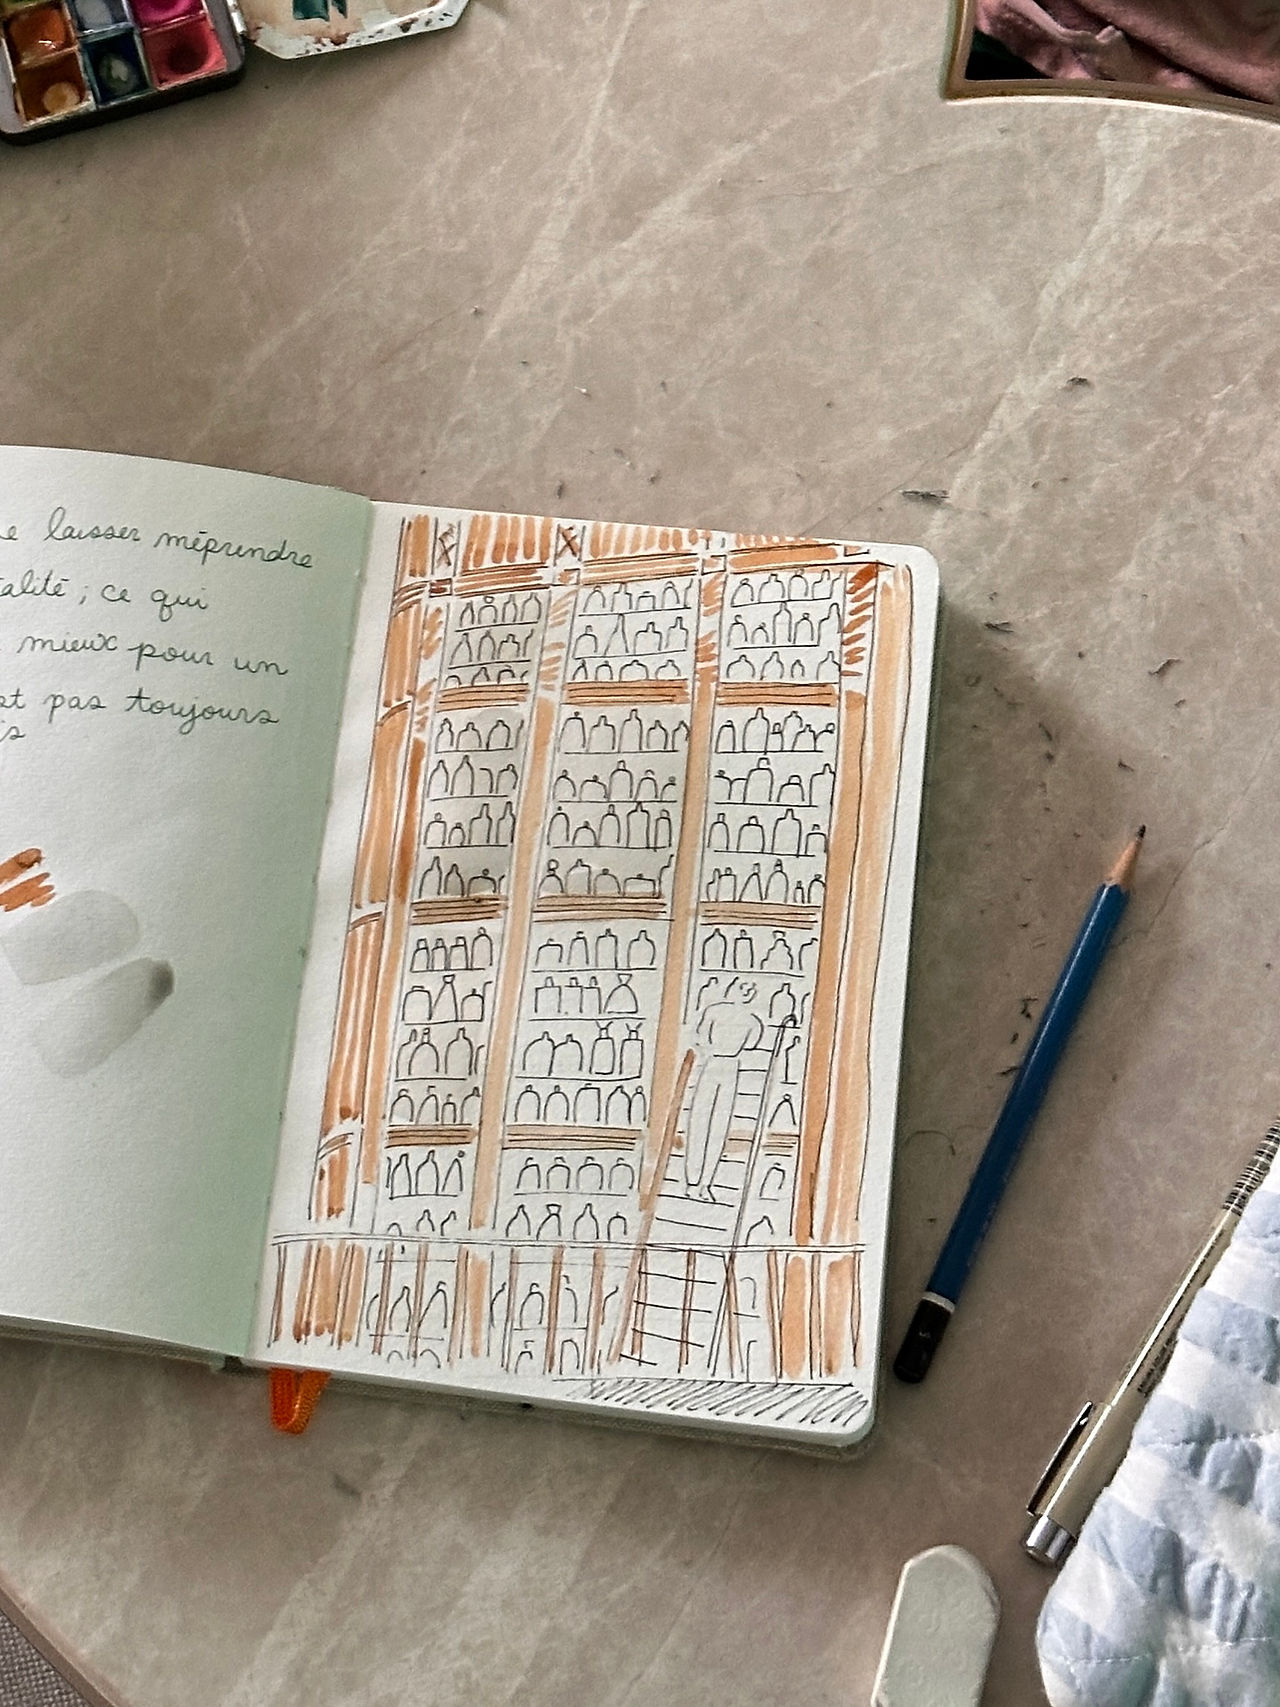 laisser méprendre
alité ; ce qui
mieux pour un
st pas toujours
is